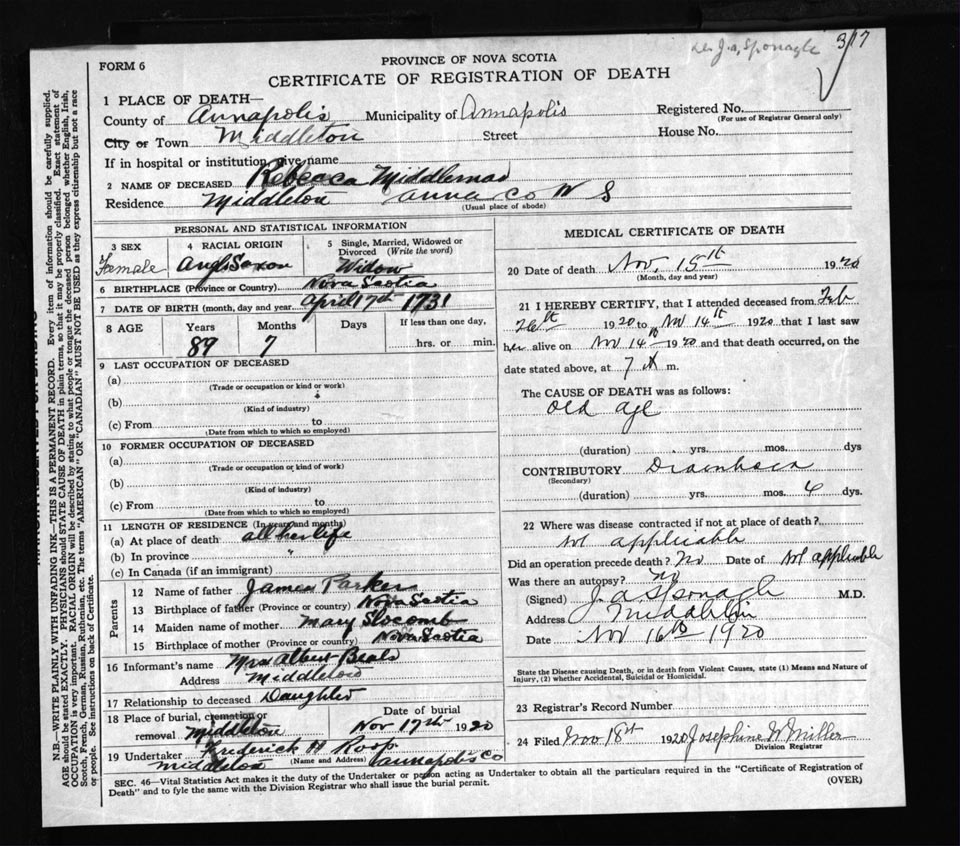 Dr. J. A. Sponagle 3/17
FORM 6
PROVINCE OF NOVA SCOTIA
CERTIFICATE OF REGISTRATION OF DEATH
1 PLACE OF DEATH—
County of Annapolis Municipality of Annapolis Registered No.
(For use of Registrar General only)
City or Town Middleton Street House No.
If in hospital or institution, give name
2 NAME OF DECEASED Rebecca Middlemas
Residence Middleton Anna Co N S
(Usual place of abode)
PERSONAL AND STATISTICAL INFORMATION
3 SEX
Female
4 RACIAL ORIGIN
Anglo Saxon
5 Single, Married, Widowed or
Divorced (Write the word)
Widow
6 BIRTHPLACE (Province or Country) Nova Scotia
7 DATE OF BIRTH (month, day and year) April 17th 1731
8 AGE Years Months Days If less than one day,
89 7 hrs. or min.
9 LAST OCCUPATION OF DECEASED
(a)
(Trade or occupation or kind or work)
(b)
(Kind of industry)
(c) From to
(Date from which to which so employed)
10 FORMER OCCUPATION OF DECEASED
(a)
(Trade or occupation or kind or work)
(b)
(Kind of industry)
(c) From to
(Date from which to which so employed)
11 LENGTH OF RESIDENCE (In years and months)
(a) At place of death all her life
(b) In province "
(c) In Canada (if an immigrant)
Parents
12 Name of father James Parker
13 Birthplace of father (Province or country) Nova Scotia
14 Maiden name of mother Mary Slocomb
15 Birthplace of mother (Province or country) Nova Scotia
16 Informant's name Mrs Albert Beals
Address Middleton
17 Relationship to deceased Daughter
18 Place of burial, cremation or Date of burial
removal Middleton Nov 17th 1920
19 Undertaker Frederick H Roop
(Name and Address)
Middleton Annapolis Co
MEDICAL CERTIFICATE OF DEATH
20 Date of death Nov, 15th 1920
(Month, day and year)
21 I HEREBY CERTIFY, that I attended deceased from Feb
26th 1920 to Nov 14th 1920 that I last saw
her alive on Nov 14th 1920 and that death occurred, on the
date stated above, at 7 A m.
The CAUSE OF DEATH was as follows:
old age
(duration) yrs. mos. dys
CONTRIBUTORY
(Secondary)
(duration) yrs. mos. 4 dys.
22 Where was disease contracted if not at place of death?
Not applicable
Did an operation precede death? No Date of Not applicable
Was there an autopsy? No
(Signed) J. A. Sponagle M.D.
Address Middleton
Date Nov 16th 1920
State the Disease causing Death, or in death from Violent Causes, state (1) Means and Nature of
Injury, (2) whether Accidental, Suicidal or Homicidal.
23 Registrar's Record Number
24 Filed Nov 18th 1920 Josephine W Miller
Division Registrar
SEC. 46—Vital Statistics Act makes it the duty of the Undertaker or person acting as Undertaker to obtain all the particulars required in the "Certificate of Registration of
Death" and to fyle the same with the Division Registrar who shall issue the burial permit. (OVER)
N.B.—WRITE PLAINLY WITH UNFADING INK—THIS IS A PERMANENT RECORD. Every item of information should be carefully supplied.
AGE should be stated EXACTLY. PHYSICIANS should STATE CAUSE OF DEATH in plain terms, so that it may be properly classified. Exact statement of
OCCUPATION is very important. RACIAL ORIGIN will be described by stating to what people or tongue the deceased person belonged whether English, Irish,
Scotch, French, German, Russian, Ruthenian, etc. The terms "AMERICAN" OR "CANADIAN" MUST NOT BE USED as they express citizenship but not a race
or people. See instructions on back of Certificate.